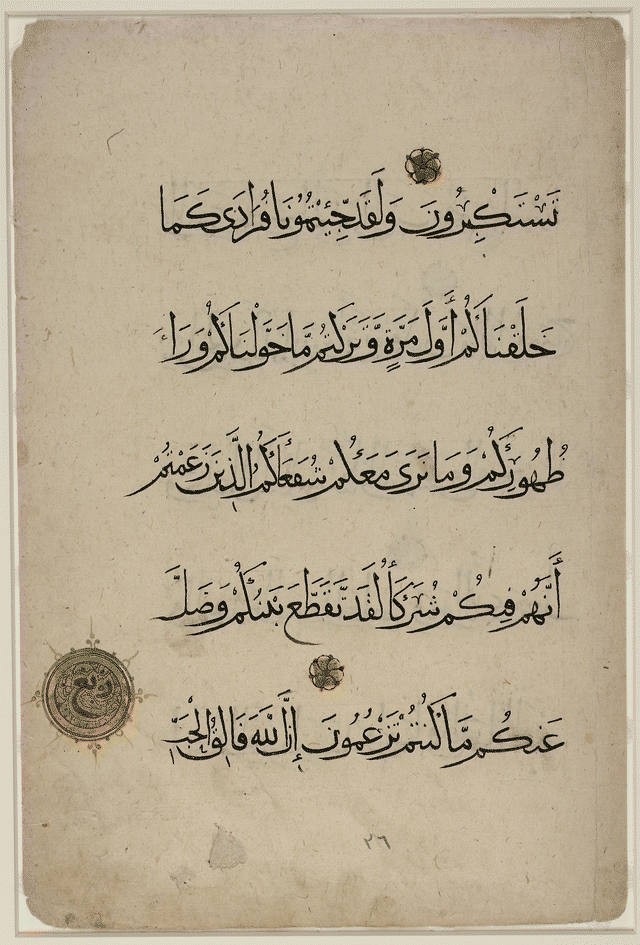 تَسْتَكْبِرُونَ وَلَقَدْ جِئْتُمُونَا فُرَادَى كَمَا
خَلَقْنَاكُمْ أَوَّلَ مَرَّةٍ وَّتَرَكْتُم مَّا خَوَّلْنَاكُمْ وَرَاءَ
ظُهُورِكُمْ وَمَا نَرَى مَعَكُمْ شُفَعَاءَكُمُ الَّذِينَ زَعَمْتُمْ
أَنَّهُمْ فِيكُمْ شُرَكَاءُ لَقَد تَّقَطَّعَ بَيْنَكُمْ وَضَلَّ
عَنكُم مَّا كُنتُمْ تَزْعُمُونَ إِنَّ اللَّهَ فَالِقُ الْحَبِّ
ربع
٢٦